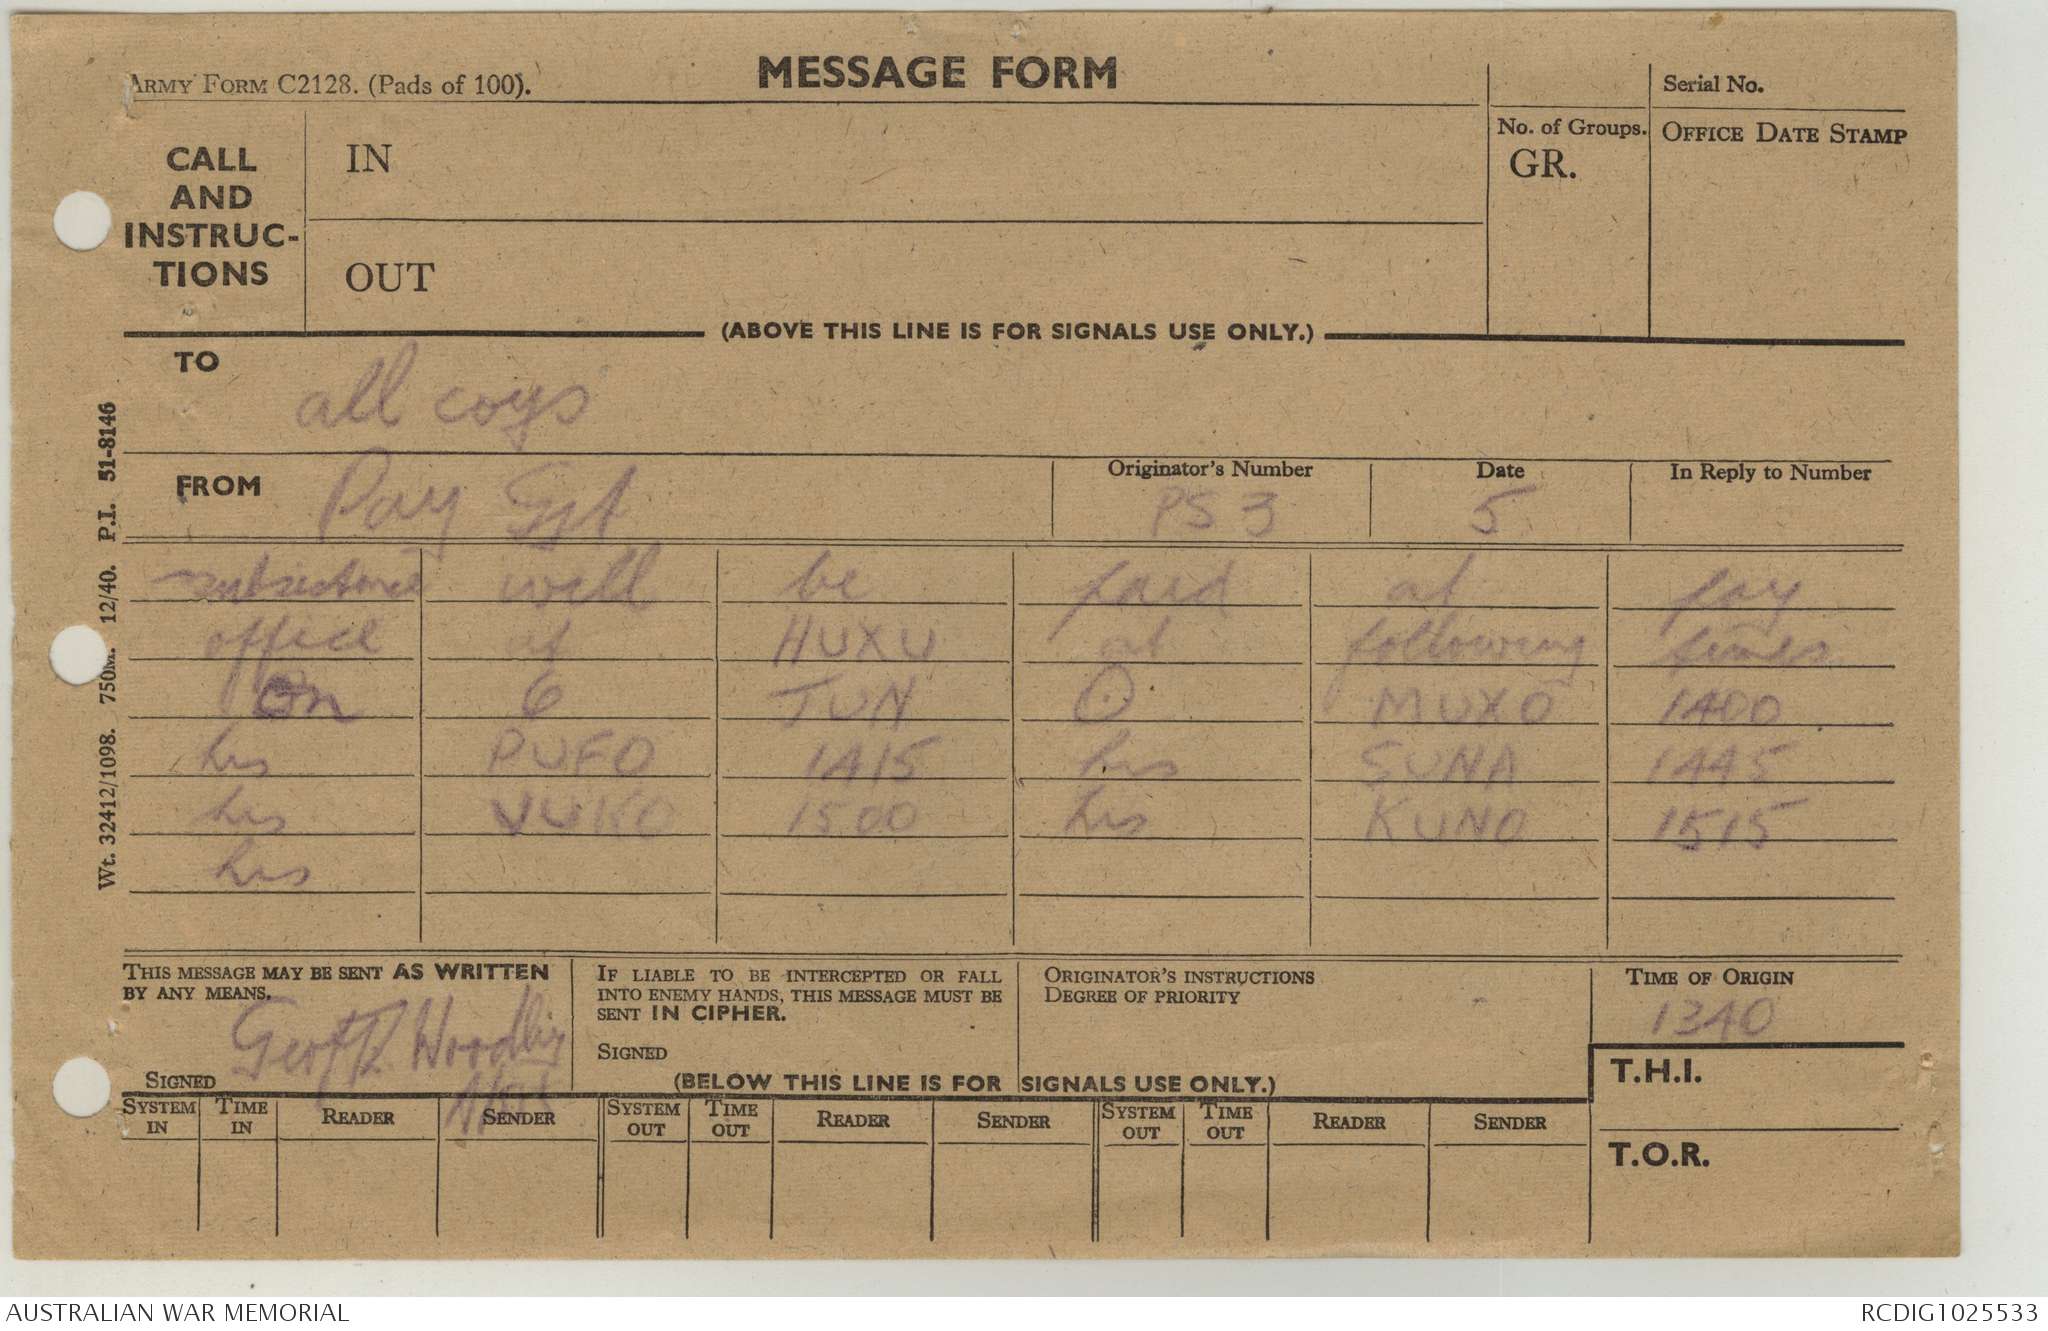 ARMY FORM C2128. (Pads of 100).
MESSAGE FORM
Serial No.
CALL
AND
INSTRUC-
TIONS
IN
OUT
No. of Groups.
GR.
OFFICE DATE STAMP
(ABOVE THIS LINE IS FOR SIGNALS USE ONLY.)
TO
all coys
FROM
Pay Sgt
Originator's Number
PS 3
Date
5
In Reply to Number
subsistence will be paid at pay
office at HUXU at following times
On 6 JUN ⊙ MUXO 1400
hrs PUFO 1415 hrs SUNA 1445
hrs VUKO 1500 hrs KUNO 1515
hrs
Wt. 32412/1098. 750M. 12/40. P.I. 51-8146
THIS MESSAGE MAY BE SENT AS WRITTEN
BY ANY MEANS.
SIGNED
Geoff
IF LIABLE TO BE INTERCEPTED OR FALL
INTO ENEMY HANDS, THIS MESSAGE MUST BE
SENT IN CIPHER.
SIGNED
ORIGINATOR'S INSTRUCTIONS
DEGREE OF PRIORITY
TIME OF ORIGIN
1340
(BELOW THIS LINE IS FOR SIGNALS USE ONLY.)
T.H.I.
T.O.R.
SYSTEM IN
TIME IN
READER
SENDER
SYSTEM OUT
TIME OUT
READER
SENDER
SYSTEM OUT
TIME OUT
READER
SENDER
AUSTRALIAN WAR MEMORIAL
RCDIG1025533